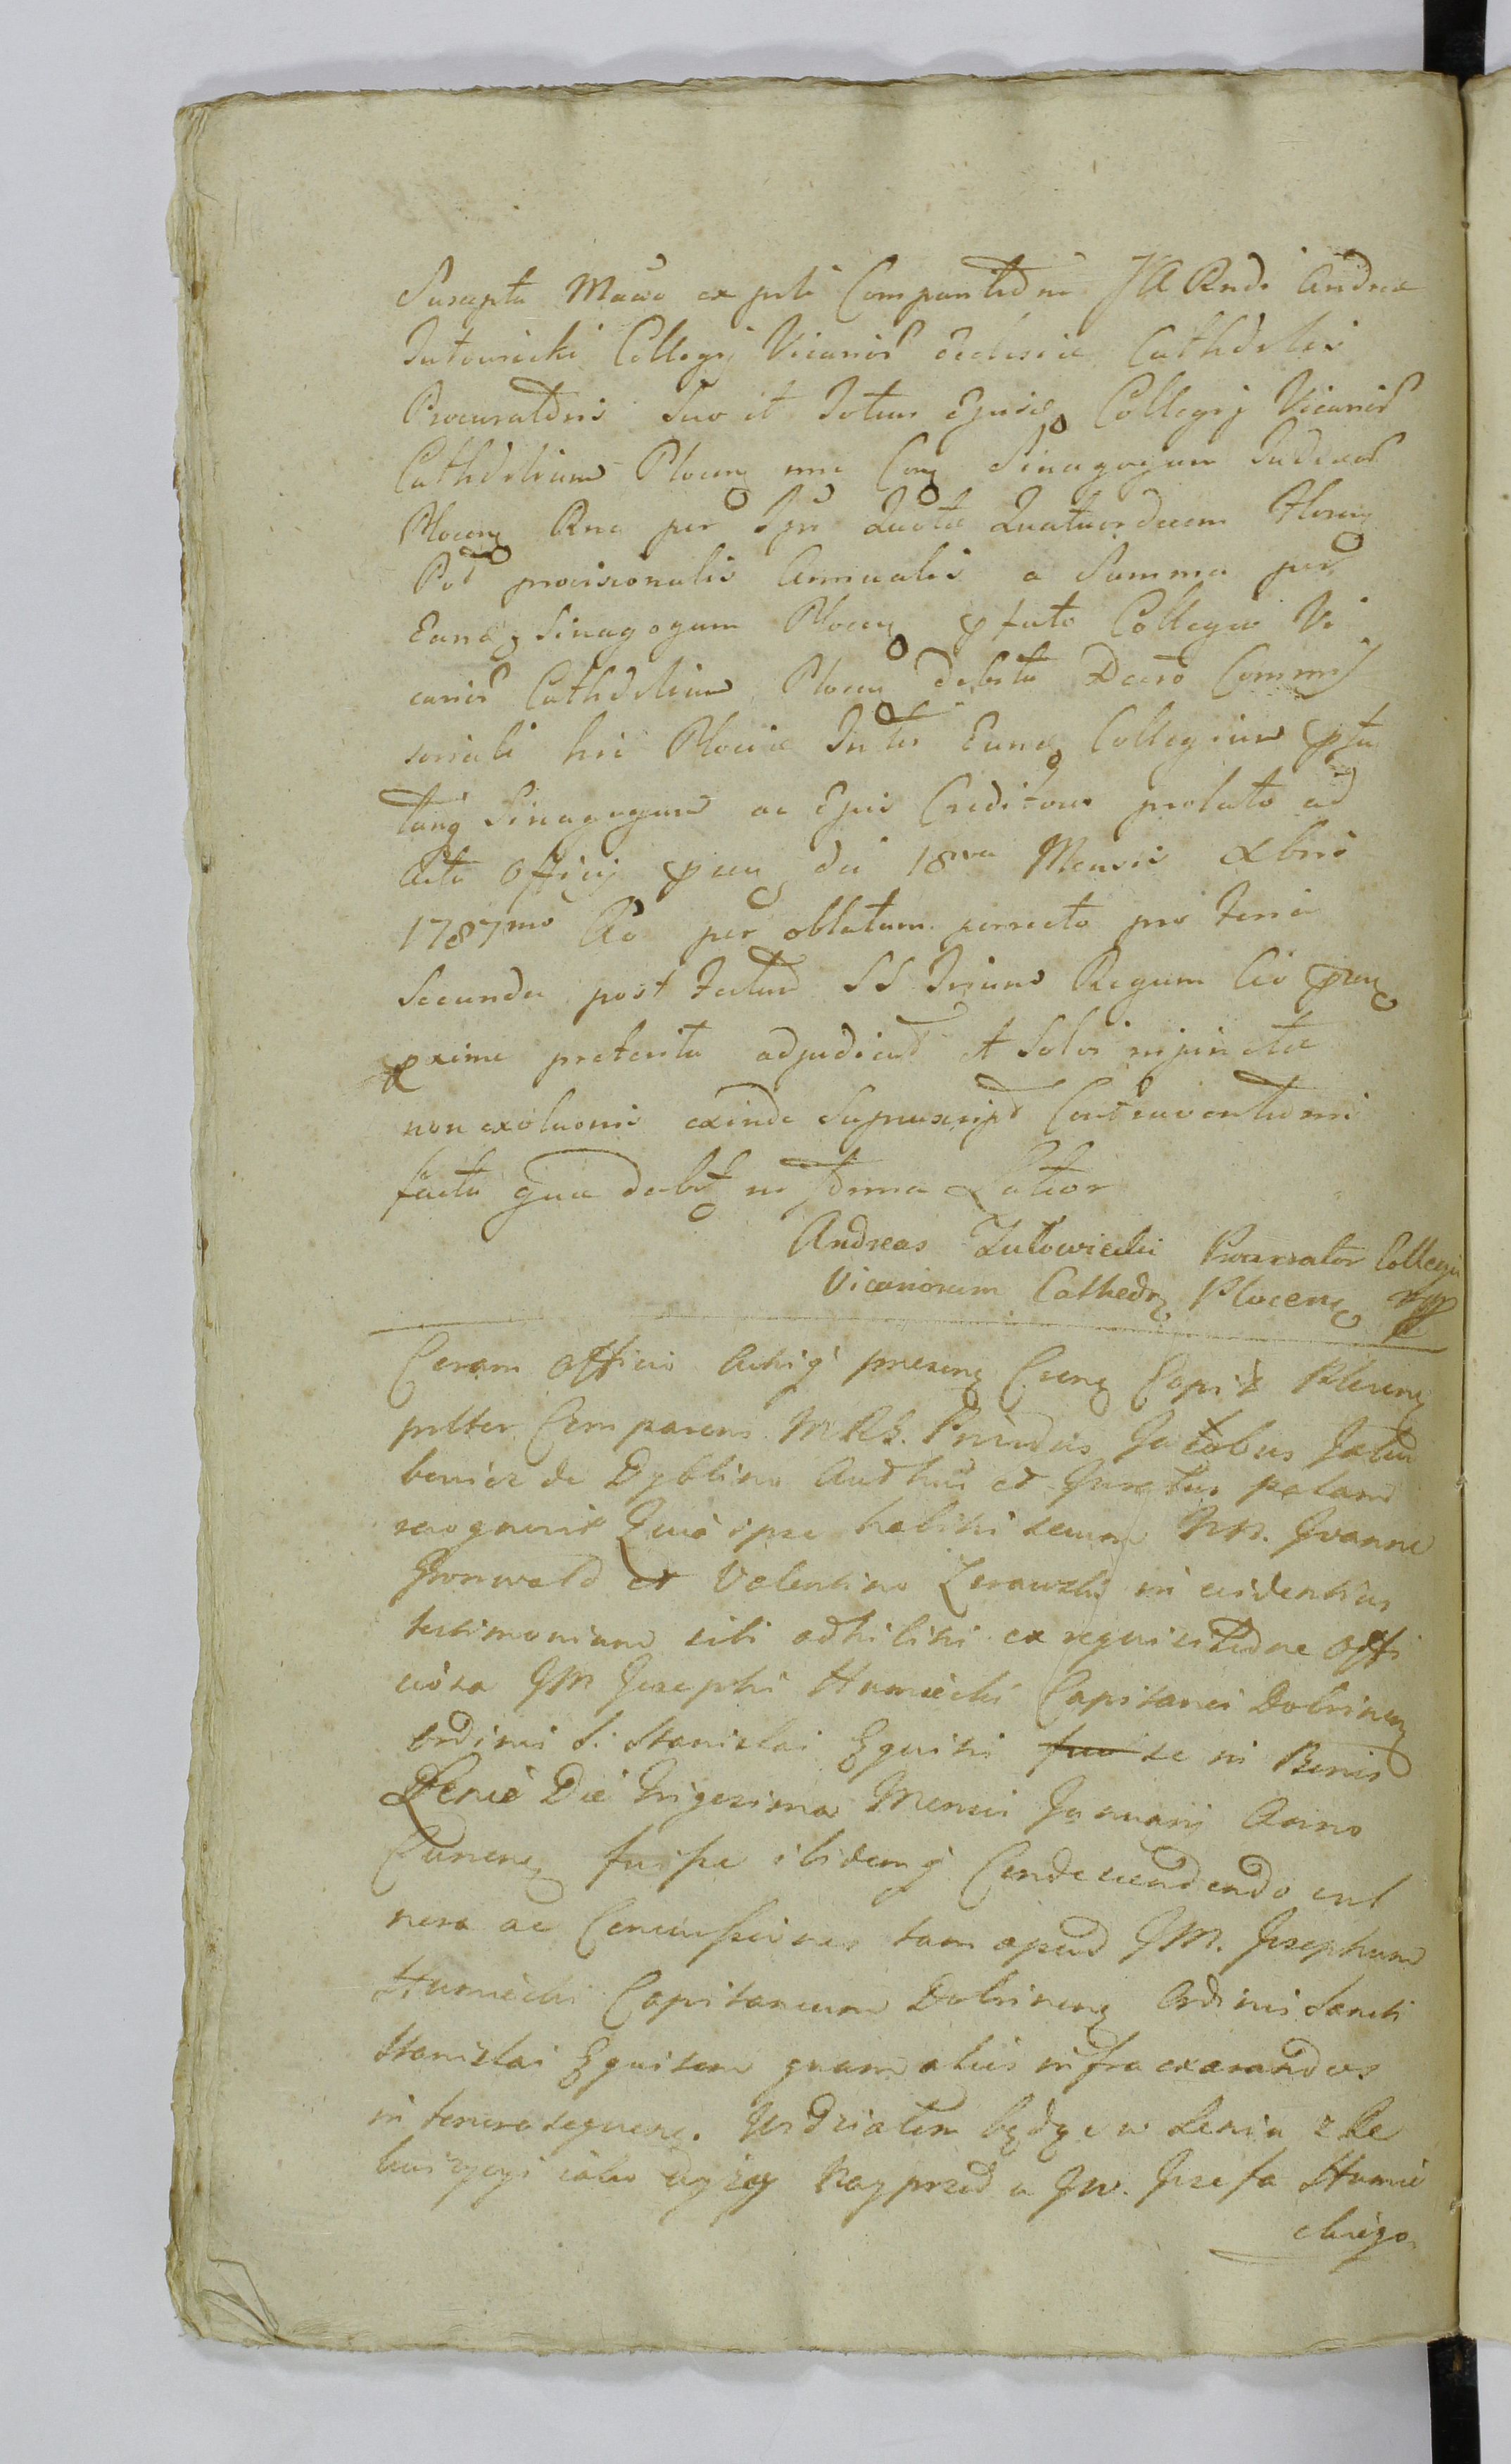 Suscepta Mano ex pśti Comparitione JA Rndi Andreæ
Zutowiecki Collegij Vicarior Ecclesiæ Cathdrlis
Procuratoris suo et totius Ejusdę Collegij Vicarior
Cathdrlium Plocenę nne Conę Sinagogam Judæor
Plocenę Rne per Quatuordecem Florenę
Pol provisionalis Annualis a Summa per
Eandę Sinagogam Plocenę pfato Collegio Vi
carior Cathdrlium Plocenę debita Dcrto Commis
soriali hic Plociæ Inter Eundę Collegium pfa
tamq Sinagogam ac Ejus Creditores prolato ad
Acta Officij pnenę die 18va Mensis Xbris
1787mo Ao per oblatam porrecto pro Feria
Secunda post Festum SS Trium Regum Ao pnenę
pxime preterita adjudicat et Solvi injunctæ
non exolutionis exinde Suprascript Contraventionis
facta qua debt in forma Latior
Andreas Zutowiecki Procurator Collegii
Vicariorum Cathedrę Plocenę mpp
Coram Officio Actisq presenę Crenę Capit Plocenę
pnlter Comparens MRs. Providus Jacobus Jaku
bowicz de Dyblino Authus et Juratus palam
recognovit Quia ipse habitis secum NN. Joanne
Gronwald et Valentino Zerawski in evidentius
testimonium sibi adhibitis ex requisitione Offi
ciosa JM Josephi Humiecki Capitanei Dobrinenę
ordinis S. Stanislai Equitis se in Bonis
Lenie Die Trigesima Mensis Januarij Anno
Currenę fuisse ibidemq Condescendendo vul
nera ac Concussiones tam apud JM. Josephum
Humiecki Capitaneum Dobrinenę Ordinis Sancti
Stanislai Equitem quam alius infra exarandos
in tenore sequenę. Widzialem będąc w Leniu z Re
kwizycyi iako wyżey Nayprzod u JW. Jozefa Humie
ckiego